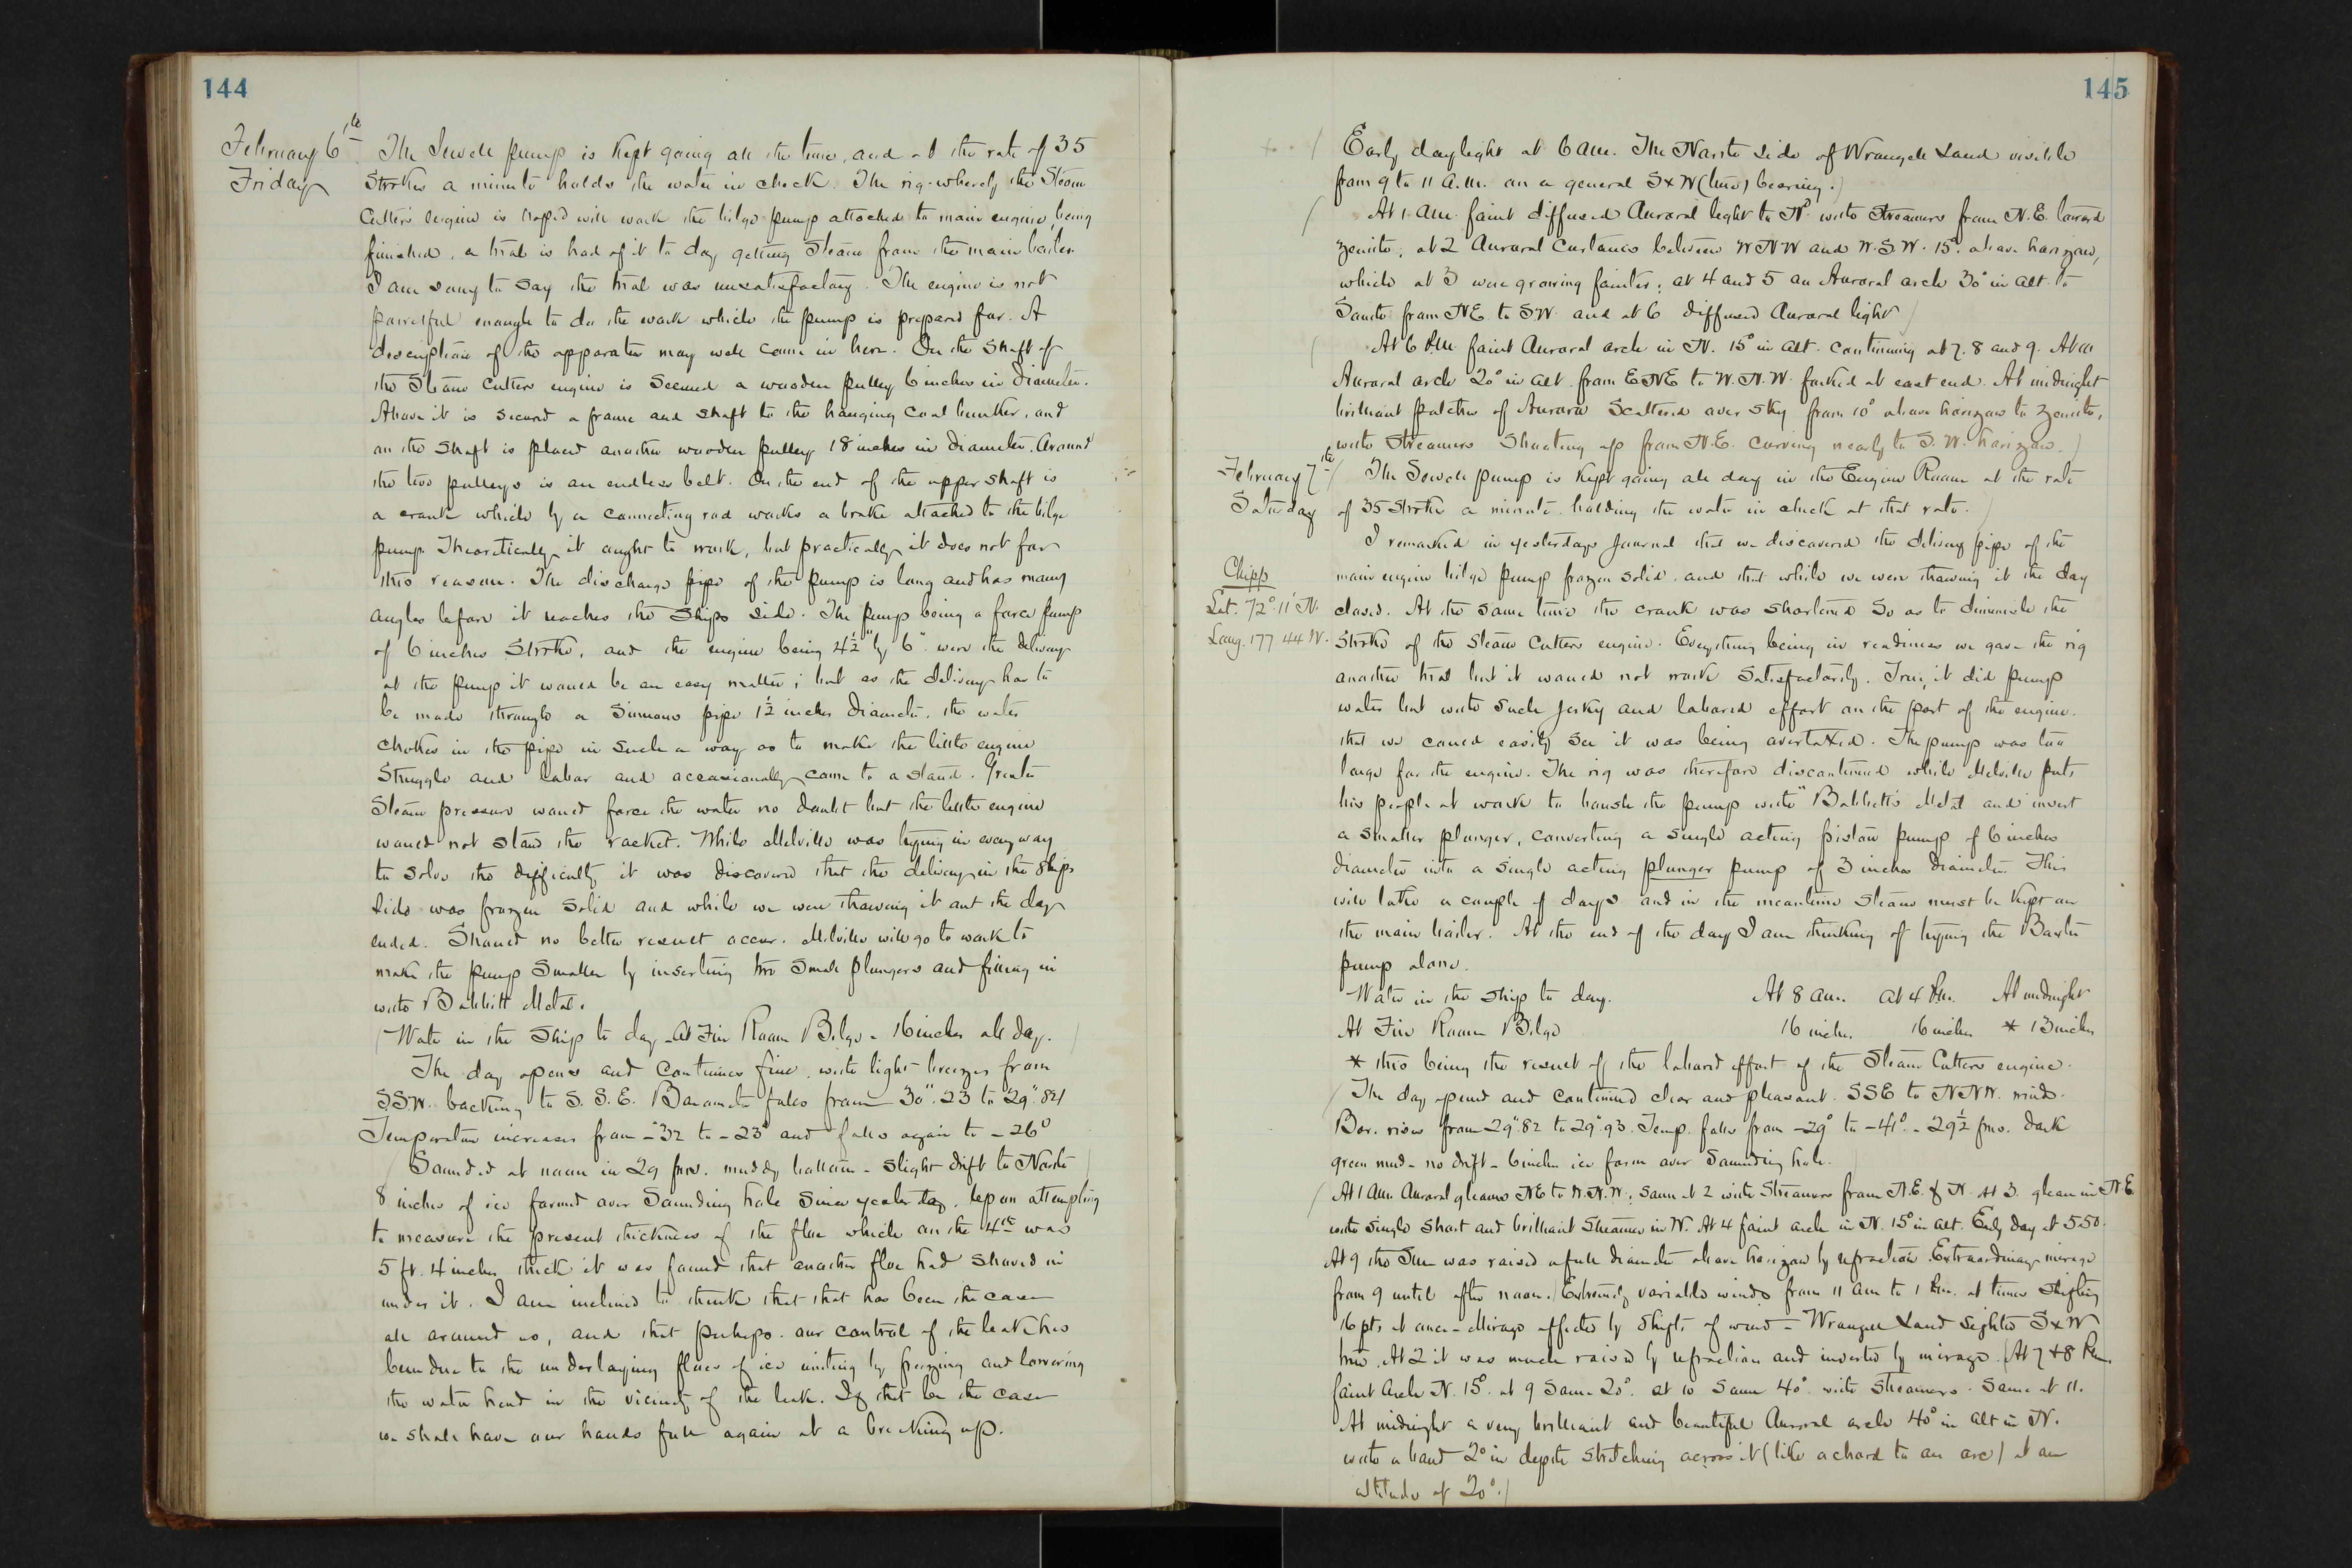 144
February 6th
Friday
The Sewell pump is kept going all the time, and at the rate of 35
Strokes a minute holds the water in check. The rig whereby the Steam
Cutters engine is hoped will work the bilge pump attached to main engine, being
finished, a trial is had of it to day getting Steam from the main boiler.
I am sorry to say the trial was unsatisfactory. The engine is not
powerful enough to do the work which the pump is prepared for. A
description of the apparatus may well come in here. On the shaft of
the Steam Cutters engine is secured a wooden pulley 6 inches in diameter.
Above it is secured a frame and shaft to the hanging coal bunker, and
on the shaft is placed another wooden pulley 18 inches in diameter. Around
the two pulleys is an endless belt. On the end of the upper shaft is
a crank which by a connecting rod works a brake attached to the bilge
pump. Theoretically it ought to work, but practically it does not for
this reason. The discharge pipe of the pump is long and has many
angles before it reaches the ships side. The pump being a force pump
of 6 inches Stroke, and the engine being 4½" by 6" were the delivery
at the pump it would be an easy matter; but as the delivery has to
be made through a sinuous pipe 1½ inches diameter, the water
chokes in the pipe in such a way as to make the little engine
Struggle and labor and occasionally come to a stand. Greater
Steam pressure would force the water no doubt but the little engine
would not stand the racket. While Melville was trying in every way
to solve the difficulty it was discovered that the delivery in the Ships
side was frozen solid and while we were thawing it out the day
ended. Should no better result occur, Melville will go to work to
make the pump smaller by inserting two small plungers and filling in
with Babbitt Metal.
Water in the Ship to day - At Fire Room Bilge - 16 inches all day.
The day opens and continues fine, with light breezes from
S.S.W. backing to S.S.E. Barometer falls from 30".23 to 29".821
Temperature increases from -32 to -23° and falls again to -26°
Sounded at noon in 29 fms. muddy bottom - slight drift to North
8 inches of ice formed over Sounding hole since yesterday. Upon attempting
to measure the present thickness of the floe which on the 4th was
5 ft. 4 inches thick it was found that another floe had shoved in
under it. I am inclined to think that that has been the case
all around us, and that perhaps our control of the leak has
been due to the underlaying floes of ice uniting by freezing and lowering
the water head in the vicinity of the leak. If that be the case
we shall have our hands full again at a breaking up.
145
Early daylight at 6 a.m. The North side of Wrangell Land visible
from 9 to 11 a.m. on a general SxW (true) bearing.
At 1 am. faint diffused Auroral light to Nd. with Streamers from N.E. toward
zenith; at 2 Auroral Curtains between WNW and W.S.W. 15° above horizon,
which at 3 were growing fainter; at 4 and 5 an Auroral arch 30° in alt. to
South from NE to SW. and at 6 diffused Auroral light
At 6 P.M. faint Auroral arch in N. 15° in alt. continuing at 7. 8 and 9. At 10
Auroral arch 20° in alt. from ENE to W.N.W. forked at east end. At midnight
brilliant patches of Aurora scattered over sky from 10° above horizon to zenith,
with Streamers Shooting up from N.E. curving nearly to S.W. horizon.
February 7th
Saturday
The Sewell pump is kept going all day in the Engine Room at the rate
of 35 Strokes a minute holding the water in check at that rate.
I remarked in yesterdays journal that we discovered the delivery pipe of the
main engine bilge pump frozen solid, and that while we were thawing it the day
Chipp
Lat. 72° 11' N.
Long. 177 44 W.
closed. At the same time the crank was shortened so as to diminish the
Stroke of the Steam Cutters engine. Everything being in readiness we gave the rig
another trial but it would not work satisfactorily. True, it did pump
water but with such jerky and labored effort on the part of the engine,
that we could easily see it was being overtaxed. The pump was too
large for the engine. The rig was therefore discontinued while Melville puts
his people at work to bush the pump with "Babbitt's Metal and insert
a smaller plunger, converting a single acting piston pump of 6 inches
diameter into a single acting plunger pump of 3 inches diameter. This
will take a couple of days and in the meantime Steam must be kept on
the main boiler. At the end of the day I am thinking of trying the Baxter
pump alone.
Water in the ship to day. At 8 am. at 4 P.M. At midnight
At Fire Room Bilge 16 inches. 16 inches * 13 inches
* this being the result of the labored effort of the Steam Cutters engine.
The day opened and continued clear and pleasant. SSE to NNW. winds.
Bar. rises from 29".82 to 29".93. Temp. falls from -29° to -41°. - 29½ fms. dark
green mud - no drift - 6 inches ice form over Sounding hole.
At 1 am. Auroral gleams NE to W.N.W.; Same at 2 with Streamers from N.E. & N. At 3. gleam in N.E.
with single short and brilliant Streamer in W. At 4 faint arch in N. 15° in alt. Early day at 5.50.
At 9 the Sun was raised a full diameter above horizon by refraction. Extraordinary mirage
from 9 until after noon. Extremely variable winds from 11 am to 1 P.m. at times Shifting
16 pts at once - Mirage affected by Shifts of wind - Wrangell Land sighted SxW
true. At 2 it was much raised by refraction and inverted by mirage. At 7 & 8 P.m.
faint Arch N. 15°. at 9 Same 20°. at 10 Same 40° with Streamers. Same at 11.
At midnight a very brilliant and beautiful Auroral arch 40° in alt in N.
with a band 2° in depth stretching across it (like a chord to an arc) at an
altitude of 20°.